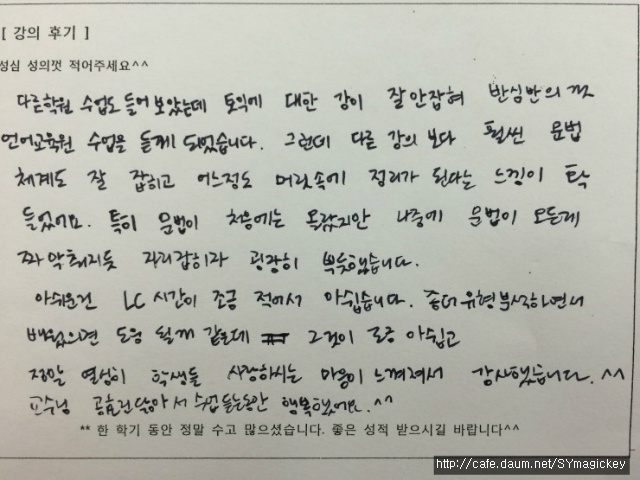 [ 강의 후기 ]
성심 성의껏 적어주세요^^
다른학원 수업도 들어보았는데 토익에 대한 감이 잘안잡혀 반심반의로
언어교육원 수업을 듣게 되었습니다. 그런데 다른 강의 보다 훨씬 문법
체계도 잘 잡히고 어느정도 머릿속에 정리가 된다는 느낌이 탁
들었어요. 특히 문법이 처음에는 몰랐지만 나중에 문법이 모든게
짜 맞춰지듯 자리잡히라 굉장히 뿌듯했습니다.
아쉬운건 LC 시간이 조금 적어서 아쉽습니다. 좀더 유형분석하면서
배웠으면 도움 될꺼 같은데 그것이 조금 아쉽고
정말 열성히 학생들 사랑하시는 마음이 느껴져서 감사했습니다. ^^
교수님 수업듣는동안 행복했어요. ^^
** 한 학기 동안 정말 수고 많으셨습니다. 좋은 성적 받으시길 바랍니다^^
http://cafe.daum.net/SYmagickey